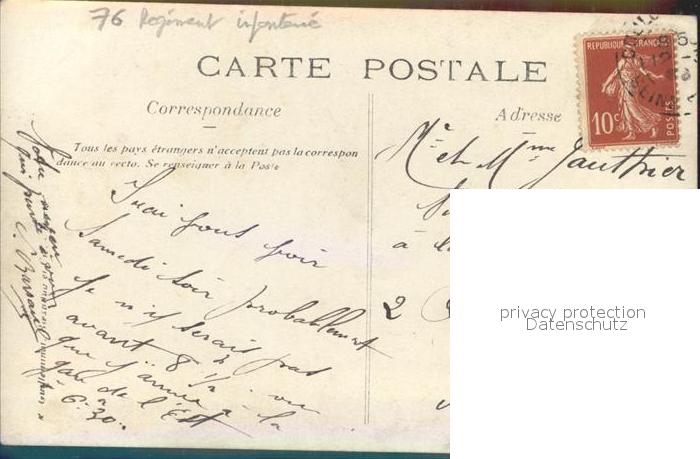 76 Regiment infanterie
CARTE POSTALE
Correspondance
Adresse
REPUBLIQUE FRANÇAISE
10c
POSTES
Tous les pays étrangers n'acceptent pas la correspon
dance au recto. Se renseigner à la Poste
Mr et Mme Gauthier
à
2
J'irai vous voir
Samedi soir probablement
Je n'y serais pas
avant 8 h 1/2 vu
que j'arrive à la
gare de l'Est
à 6.30.
Votre neveu
qui
privacy protection
Datenschutz